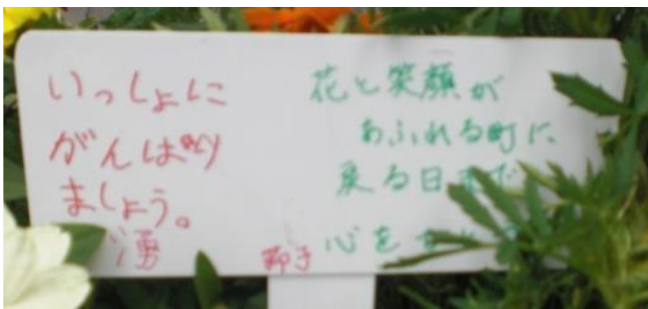 いっしょに
がんばり
ましょう。
湧
花と笑顔が
あふれる町に
戻る日まで
心を
節子